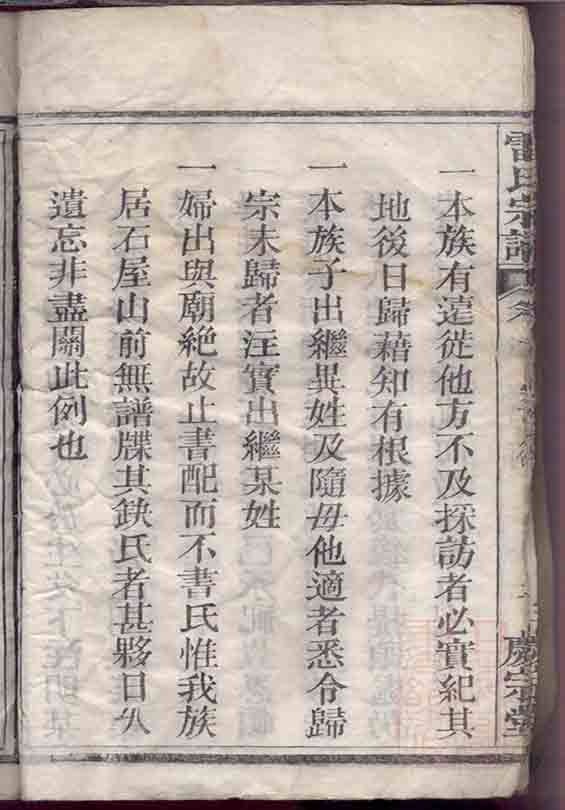 雷氏宗譜
慶宗堂
一本族有遠徙他方不及採訪者必實紀其
地後日歸藉知有根據
一本族子出繼異姓及隨母他適者悉令歸
宗未歸者注實出繼某姓
一婦出與廟絕故止書配而不書氏惟我族
居石屋山前無譜牒其缺氏者甚夥日久
遺忘非盡關此例也